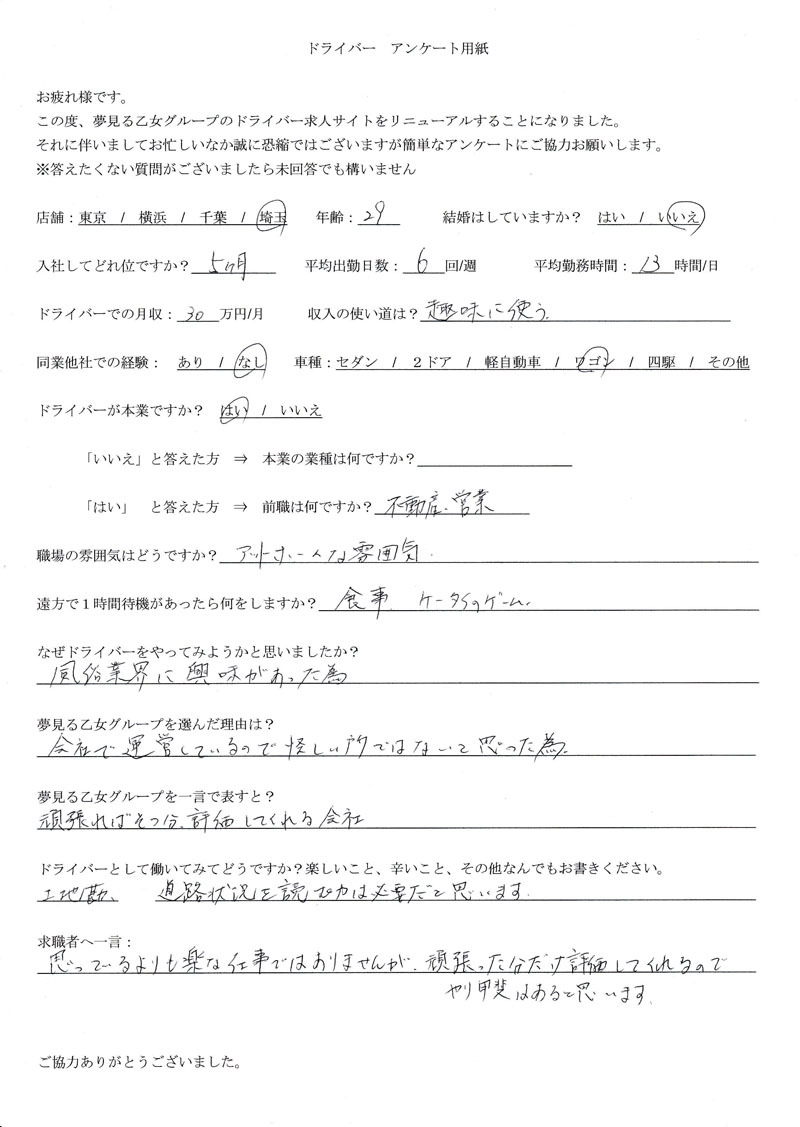 ドライバー　アンケート用紙
お疲れ様です。
この度、夢見る乙女グループのドライバー求人サイトをリニューアルすることになりました。
それに伴いましてお忙しいなか誠に恐縮ではございますが簡単なアンケートにご協力お願いします。
※答えたくない質問がございましたら未回答でも構いません
店舗：東京　/　横浜　/　千葉　/　埼玉　　年齢：29　　結婚はしていますか？　はい　/　いいえ
入社してどれ位ですか？　5ヶ月　　平均出勤日数：6　回/週　　平均勤務時間：13　時間/日
ドライバーでの月収：30　万円/月　　収入の使い道は？　趣味に使う。
同業他社での経験：　あり　/　なし　　車種：セダン　/　２ドア　/　軽自動車　/　ワゴン　/　四駆　/　その他
ドライバーが本業ですか？　はい　/　いいえ
「いいえ」と答えた方　⇒　本業の業種は何ですか？
「はい」　と答えた方　⇒　前職は何ですか？　不動産、営業
職場の雰囲気はどうですか？　アットホームな雰囲気.
遠方で１時間待機があったら何をしますか？　食事　ケータイのゲーム.
なぜドライバーをやってみようかと思いましたか？
風俗業界に興味があった為
夢見る乙女グループを選んだ理由は？
会社で運営しているので怪しい所ではないと思った為.
夢見る乙女グループを一言で表すと？
頑張ればその分、評価してくれる会社
ドライバーとして働いてみてどうですか？楽しいこと、辛いこと、その他なんでもお書きください。
土地勘、　道路状況を読む力は必要だと思います.
求職者へ一言：
思っているよりも楽な仕事ではありませんが、頑張った分だけ評価してくれるので
やり甲斐はあると思います.
ご協力ありがとうございました。